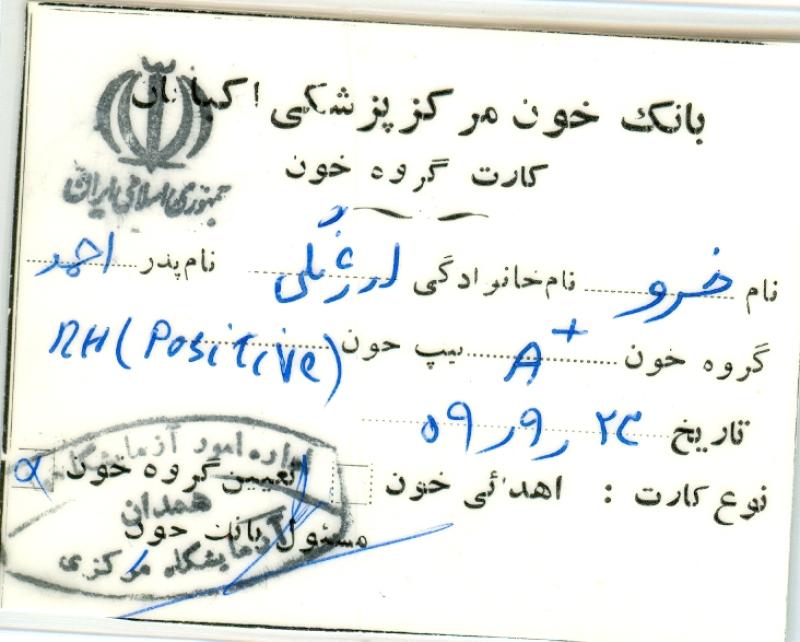 بانک خون مرکز پزشکی اکباتان
جمهوری اسلامی ایران
کارت گروه خون
نام خسرو نام خانوادگی نام پدر احمد
گروه خون A+ تیپ خون RH (Positive)
تاریخ ۵۹٫۹٫۲۳
نوع کارت : اهدائی خون تعیین گروه خون
مسئول بانک خون
اداره امور آزمایشگاهی
همدان
آزمایشگاه مرکزی